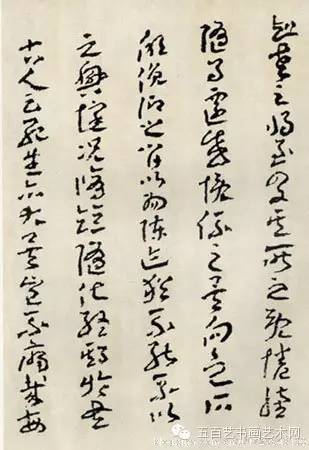 知老之將至及其所之既惓情
隨事遷感慨係之矣向之所
欣俛仰之間以為陳迹猶不能不以
之興懷況脩短隨化終期於盡
古人云死生亦大矣豈不痛哉每
五百艺书画艺术网